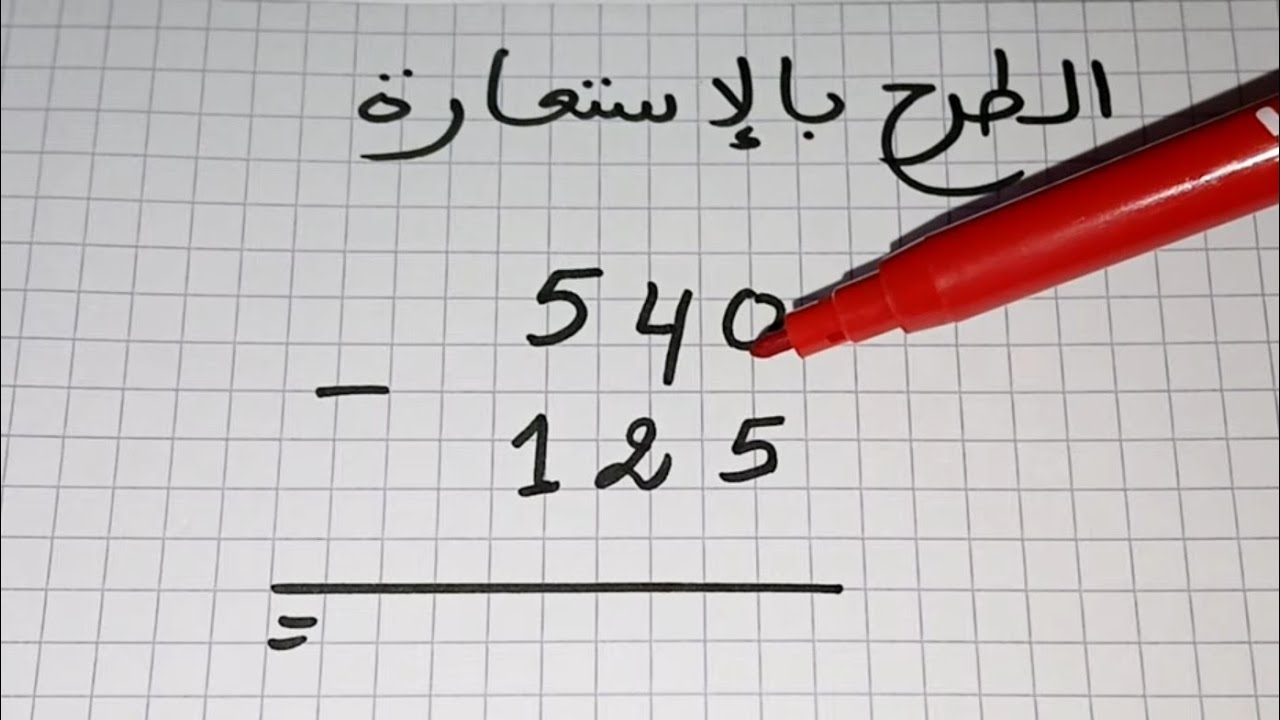 الطرح بالإستعارة
540
-
125
=